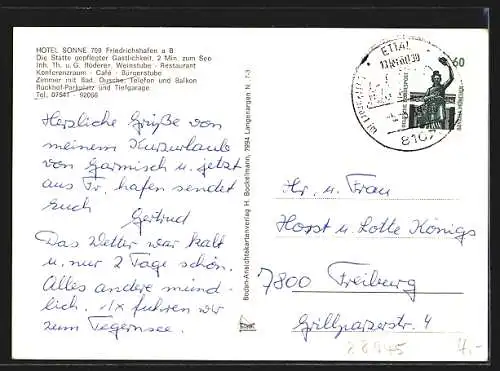 HOTEL SONNE 799 Friedrichshafen a B
Die Stätte gepflegter Gastlichkeit, 2 Min. zum See
Inh. Th. u. G. Röderer. Weinstube · Restaurant
Konferenzraum · Café · Bürgerstube
Zimmer mit Bad, Dusche, Telefon und Balkon
Rückhof-Parkplatz und Tiefgarage
Tel. 07541 - 92066
Herzliche Grüße von
meinem Kurzurlaub
von Garmisch u. jetzt
aus Fr. hafen sendet
Euch
Gertrud
Das Wetter war kalt
u. nur 2 Tage schön.
Alles andere münd-
lich. 1x fuhren wir
zum Tegernsee.
Boden-Ansichtskartenverlag H. Bockelmann, 7994 Langenargen N. 7-3
ETTAL
60
8107
Hr. u. Frau
Horst u. Lotte Königs
7800 Freiburg
Grillparzerstr. 4
4,-